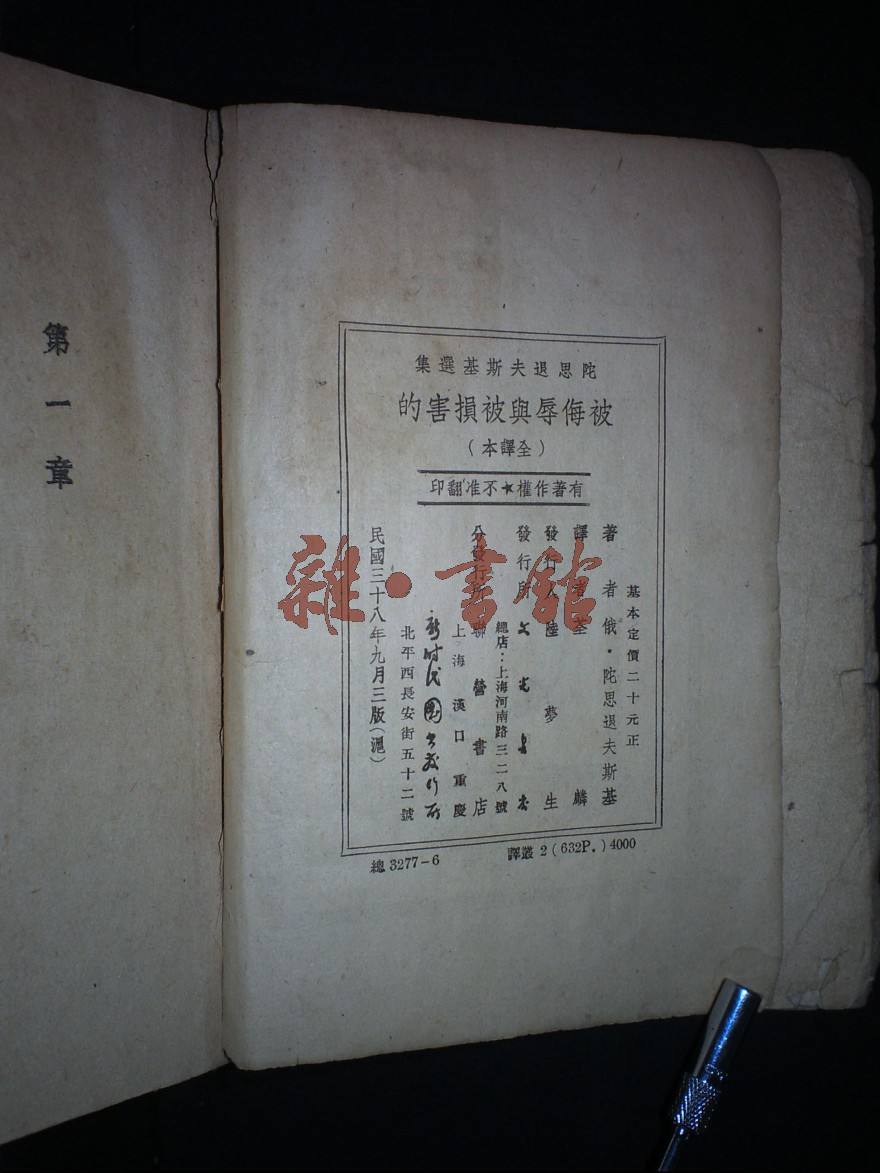 陀思退夫斯基選集
被侮辱與被損害的
(全譯本)
有著作權★不准翻印
基本定價二十元正
著者 俄·陀思退夫斯基
譯者 荃麟
發行人 陸夢生
發行所 文光書店
總店：上海河南路三二八號
分發行所 聯營書店
上海 漢口 重慶
新時代圖書發行所
北平西長安街五十二號
民國三十八年九月三版(滬)
譯叢 2 (632P.) 4000
總 3277-6
第一章
雜·書館